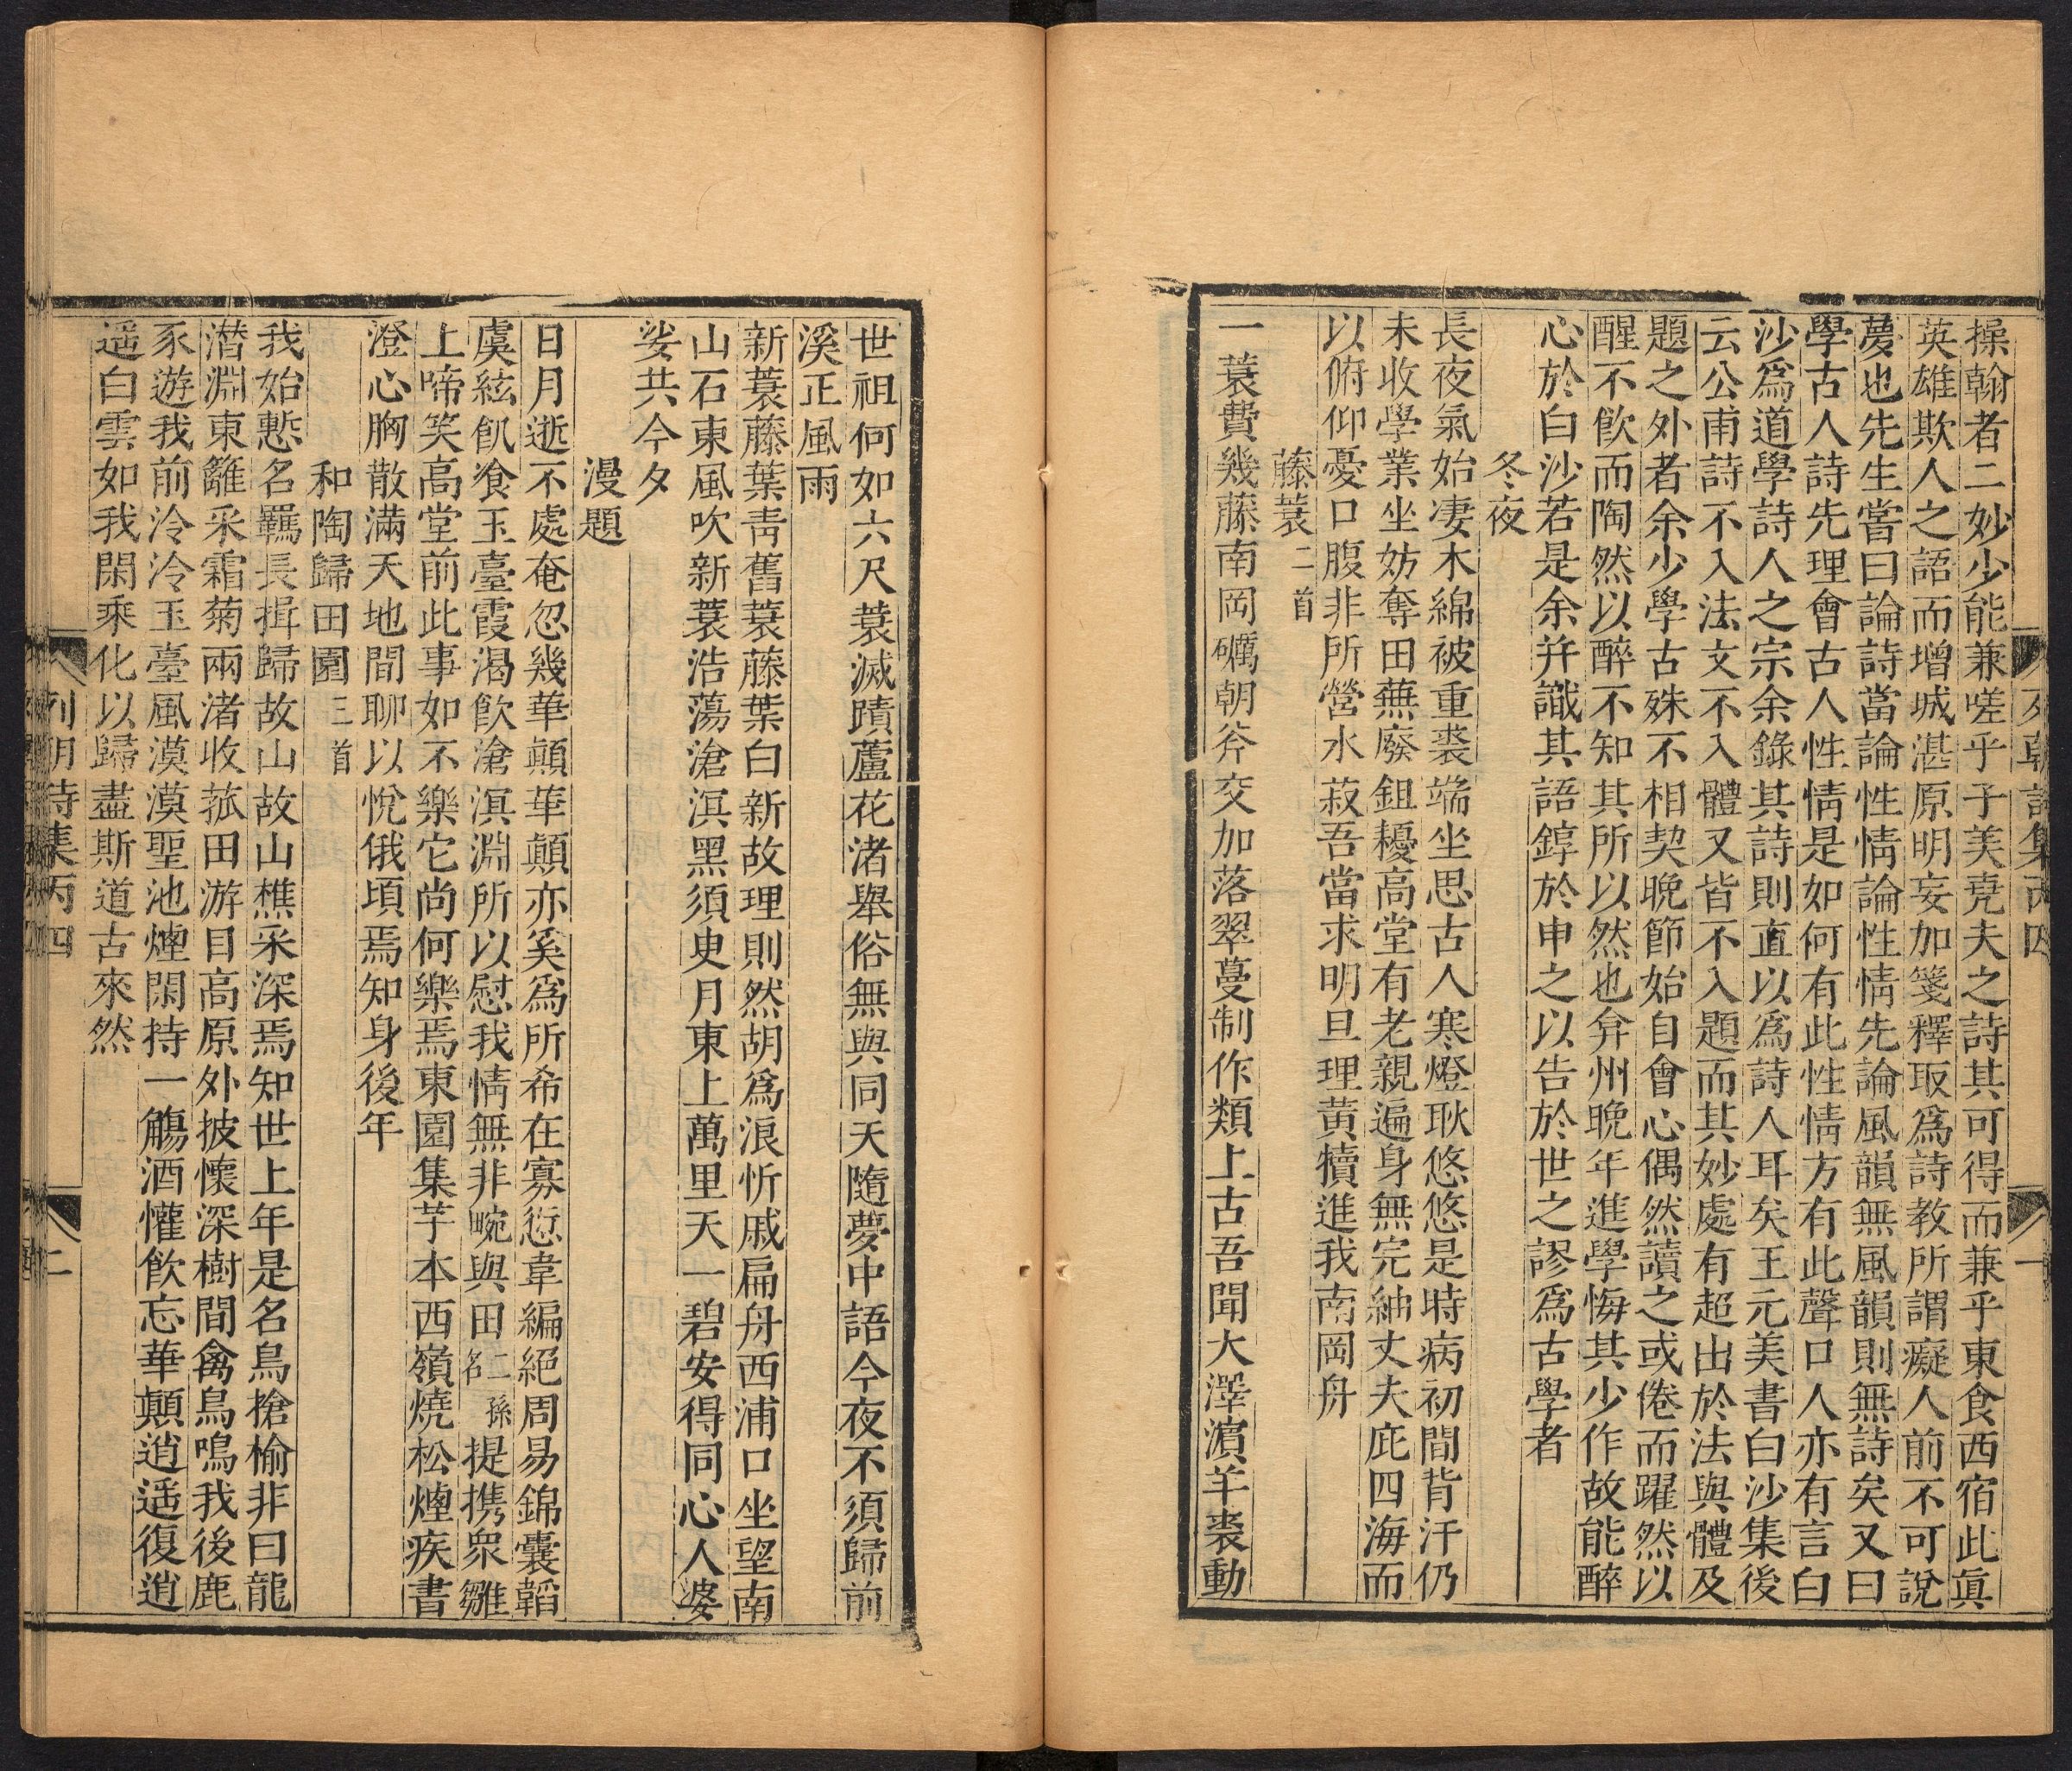 列朝詩集丙四
一
操翰者二妙少能兼嗟乎子美堯夫之詩其可得而兼乎東食西宿此眞
英雄欺人之語而增城湛原明妄加箋釋取爲詩教所謂癡人前不可說
夢也先生嘗曰論詩當論性情論性情先論風韻無風韻則無詩矣又曰
學古人詩先理會古人性情是如何有此性情方有此聲口人亦有言白
沙爲道學詩人之宗余錄其詩則直以爲詩人耳矣王元美書白沙集後
云公甫詩不入法文不入體又皆不入題而其妙處有超出於法與體及
題之外者余少學古殊不相契晚節始自會心偶然讀之或倦而躍然以
醒不飲而陶然以醉不知其所以然也弇州晚年進學悔其少作故能醉
心於白沙若是余并識其語錞於申之以告於世之謬爲古學者
冬夜
長夜氣始凄木綿被重裘端坐思古人寒燈耿悠悠是時病初間背汗仍
未收學業坐妨奪田蕪廢鉏耰高堂有老親遍身無完紬丈夫庇四海而
以俯仰憂口腹非所營水菽吾當求明旦理黃犢進我南岡舟
藤蓑二首
一蓑費幾藤南岡礪朝斧交加落翠蔓制作類上古吾聞大澤濵羊裘動
世祖何如六尺蓑滅蹟蘆花渚舉俗無與同天隨夢中語今夜不須歸前
溪正風雨
新蓑藤葉靑舊蓑藤葉白新故理則然胡爲浪忻戚扁舟西浦口坐望南
山石東風吹新蓑浩蕩滄溟黑須臾月東上萬里天一碧安得同心人婆
娑共今夕
漫題
日月逝不處奄忽幾華顚華顚亦奚爲所希在寡愆韋編絕周易錦囊韜
虞絃飢飡玉臺霞渴飲滄溟淵所以慰我情無非畹與田二孫名提携衆雛
上啼笑高堂前此事如不樂它尚何樂焉東園集芋本西嶺燒松煙疾書
澄心胸散滿天地間聊以悅俄頃焉知身後年
和陶歸田園三首
我始慙名羈長揖歸故山故山樵采深焉知世上年是名鳥搶榆非曰龍
潛淵東籬采霜菊兩渚收菰田游目高原外披懷深樹間禽鳥鳴我後鹿
豕遊我前泠泠玉臺風漠漠聖池煙閑持一觴酒懽飲忘華顚逍遥復逍
遥白雲如我閑乘化以歸盡斯道古來然
列朝詩集丙四
二